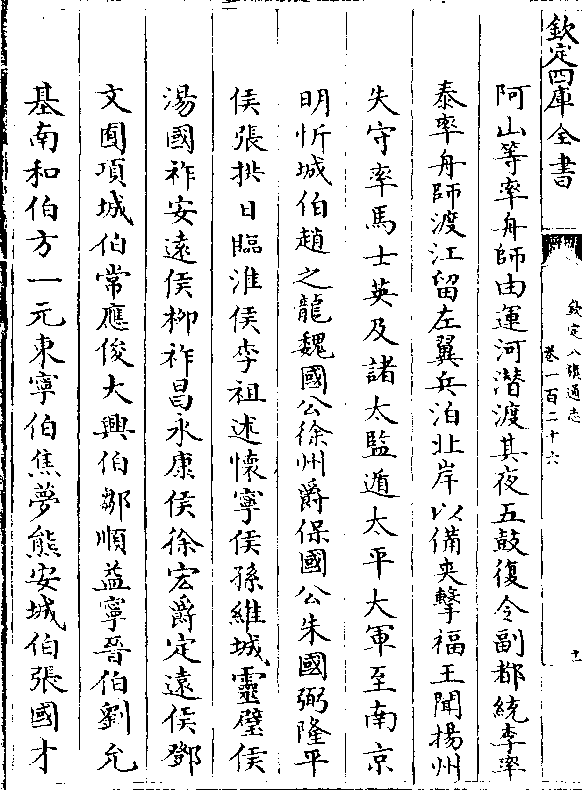 欽定四庫全書
欽定八旗通志
卷一百二十六
十一
阿山等率舟師由運河潛渡其夜五鼓復令副都統李率
泰率舟師渡江留左翼兵泊北岸以備夾擊福王聞揚州
失守率馬士英及諸太監遁太平大軍至南京
明忻城伯趙之龍魏國公徐州爵保國公朱國弼隆平
侯張拱日臨淮侯李祖述懷寧侯孫維城靈璧侯
湯國祚安遠侯柳祚昌永康侯徐宏爵定遠侯鄧
文囿項城伯常應俊大興伯鄒順益寧晉伯劉允
基南和伯方一元東寧伯焦夢熊安城伯張國才